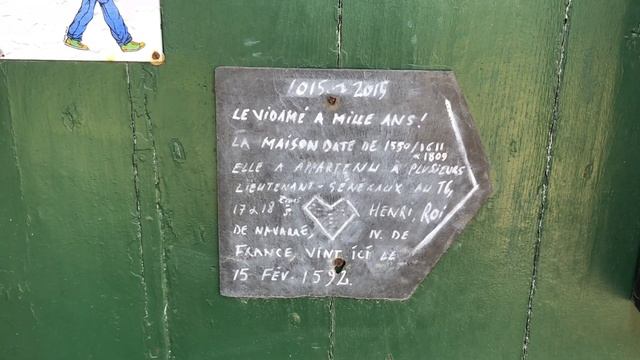 1015 → 2015
LE VIDAMÉ A MILLE ANS!
LA MAISON DATE DE 1550/1611
& 1809
ELLE A APARTENU À PLUSIEURS
LIEUTENANT-GÉNÉRAUX AU
17 & 18 HENRI, ROI
DE NAVARRE, IV. DE
FRANCE, VINT ICI LE
15 FÉV. 1592.